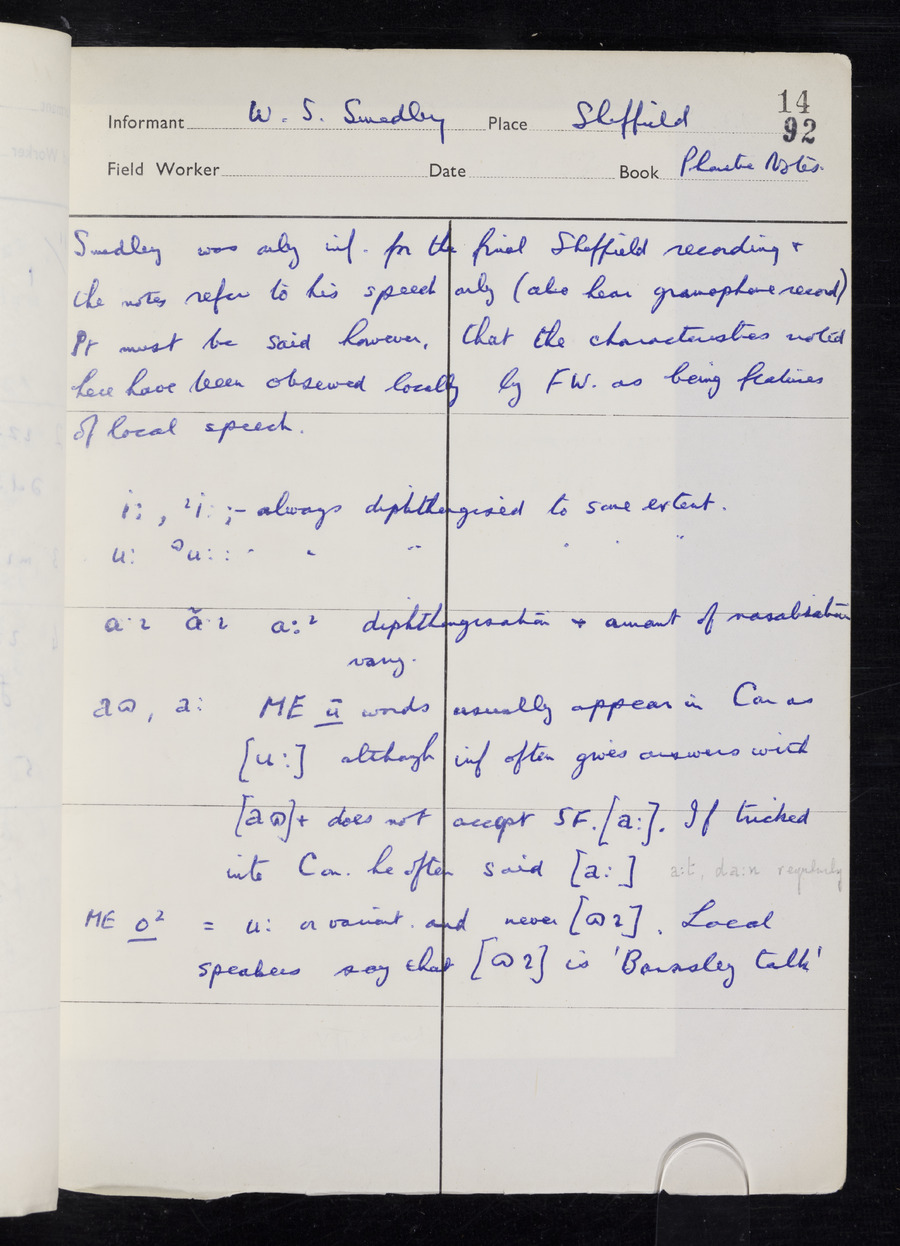 14
Informant W. S. Smedley Place Sheffield 92
Field Worker Date Book Phonetic Notes.
Smedley was only inf. for the final Sheffield recording +
the notes refer to his speech only (also hear gramophone record)
It must be said however, that the characteristics noted
here have been observed locally by F.W. as being features
of local speech.
i: , ɪi: ;- always diphthongised to some extent.
u: ᶷu: : " " " " " "
aˑɪ ãˑɪ a:ɪ diphthongisation + amount of nasalisation
vary.
aɷ, a: ME ū words usually appear in Con as
[u:] although inf often gives answers with
[aɷ] + does not accept SF. [a:]. If tricked
into Con. he often said [a:] a:t, da:n regularly
ME o² = u: or variant. and never [ɷɪ]. Local
speakers say that [ɷɪ] is 'Barnsley talk'